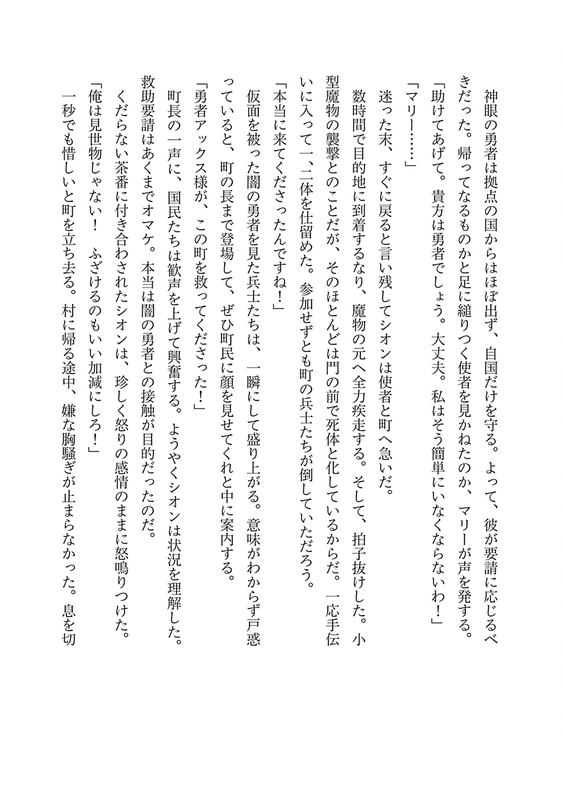 神眼の勇者は拠点の国からはほぼ出ず、自国だけを守る。よって、彼が要請に応じるべ
きだった。帰ってなるものかと足に縋りつく使者を見かねたのか、マリーが声を発する。
「助けてあげて。貴方は勇者でしょう。大丈夫。私はそう簡単にいなくならないわ！」
「マリー……」
迷った末、すぐに戻ると言い残してシオンは使者と町へ急いだ。
数時間で目的地に到着するなり、魔物の元へ全力疾走する。そして、拍子抜けした。小
型魔物の襲撃とのことだが、そのほとんどは門の前で死体と化しているからだ。一応手伝
いに入って一、二体を仕留めた。参加せずとも町の兵士たちが倒していただろう。
「本当に来てくださったんですね！」
仮面を被った闇の勇者を見た兵士たちは、一瞬にして盛り上がる。意味がわからず戸惑
っていると、町の長まで登場して、ぜひ町民に顔を見せてくれと中に案内する。
「勇者アックス様が、この町を救ってくださった！」
町長の一声に、国民たちは歓声を上げて興奮する。ようやくシオンは状況を理解した。
救助要請はあくまでオマケ。本当は闇の勇者との接触が目的だったのだ。
くだらない茶番に付き合わされたシオンは、珍しく怒りの感情のままに怒鳴りつけた。
「俺は見世物じゃない！　ふざけるのもいい加減にしろ！」
一秒でも惜しいと町を立ち去る。村に帰る途中、嫌な胸騒ぎが止まらなかった。息を切